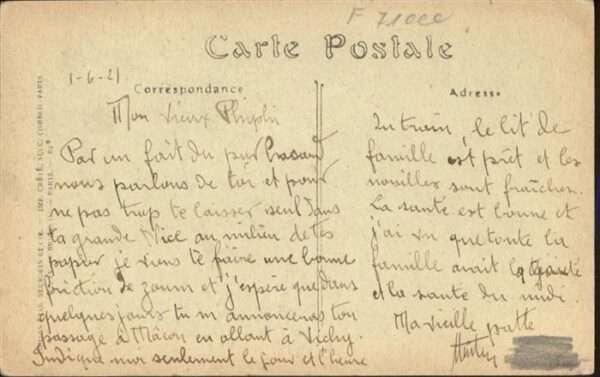 F 71000
Carte Postale
1-6-21
Correspondance
Adresse
Mon vieux
Par un fait du pur hasard
nous parlons de toi et pour
ne pas trop te laisser seul dans
ta grande Nice au milieu de tes
papier je viens te faire une bonne
friction de et j'espère que dans
quelques jours tu m'annonceras ton
passage à Mâcon en allant à Vichy.
Indique moi seulement le jour et l'heure
du train, le lit de
famille est prêt et les
nouilles sont fraîches.
La santé est bonne et
j'ai vu que toute la
famille avait la gaieté
et la santé du midi
Ma vieille patte